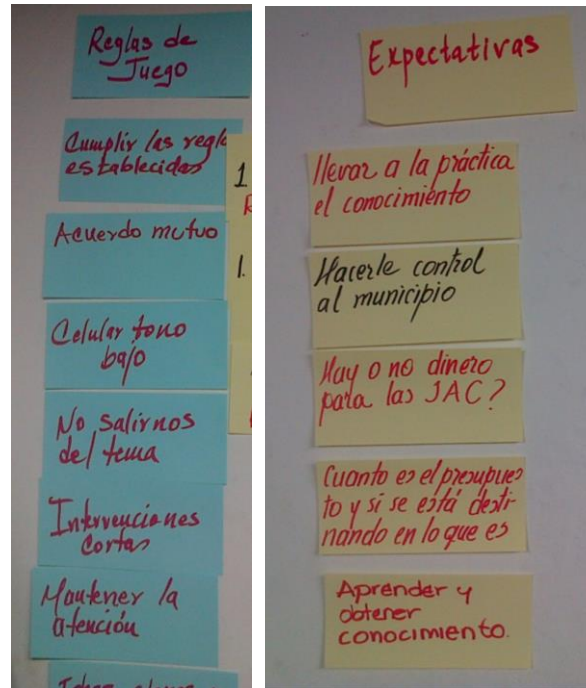 Reglas de
Juego
Cumplir las regla
establecidas
Acuerdo mutuo
Celular tono
bajo
No salirnos
del tema
Intervenciones
Cortas
Mantener la
atención
1
1.
Expectativas
llevar a la práctica
el conocimiento
Hacerle control
al municipio
Hay o no dinero
para las JAC?
Cuanto es el presupues
to y si se está desti-
nando en lo que es
Aprender y
obtener
conocimiento.